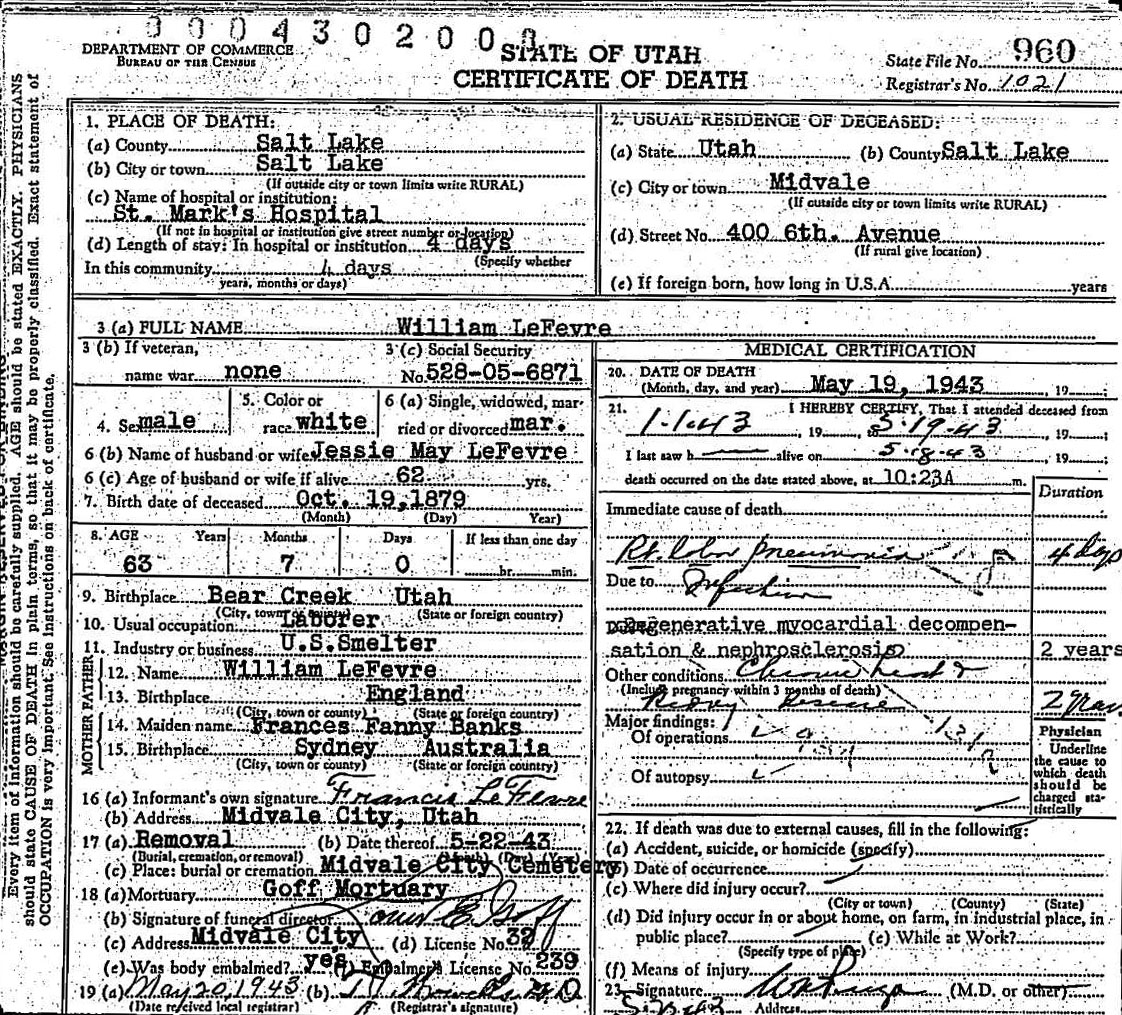 000430200
DEPARTMENT OF COMMERCE
BUREAU OF THE CENSUS
STATE OF UTAH
CERTIFICATE OF DEATH
State File No. 960
Registrar's No. 1021
Every item of information should be carefully supplied. AGE should be stated EXACTLY. PHYSICIANS
should state CAUSE OF DEATH in plain terms, so that it may be properly classified. Exact statement of
OCCUPATION is very important. See instructions on back of certificate.
1. PLACE OF DEATH:
(a) County Salt Lake
(b) City or town Salt Lake
(If outside city or town limits write RURAL)
(c) Name of hospital or institution:
St. Mark's Hospital
(If not in hospital or institution give street number or location)
(d) Length of stay: In hospital or institution 4 days
(Specify whether
In this community 4 days
years, months or days)
2. USUAL RESIDENCE OF DECEASED:
(a) State Utah (b) County Salt Lake
(c) City or town Midvale
(If outside city or town limits write RURAL)
(d) Street No. 400 6th. Avenue
(If rural give location)
(e) If foreign born, how long in U.S.A. years
3 (a) FULL NAME William LeFevre
3 (b) If veteran,
name war none
3 (c) Social Security
No. 528-05-6871
4. Sex male
5. Color or
race white
6 (a) Single, widowed, mar-
ried or divorced mar.
6 (b) Name of husband or wife Jessie May LeFevre
6 (c) Age of husband or wife if alive 62 yrs.
7. Birth date of deceased Oct. 19, 1879
(Month) (Day) Year)
8. AGE Years Months Days If less than one day
63 7 0 hr. min.
9. Birthplace Bear Creek Utah
(City, town or county) (State or foreign country)
10. Usual occupation Laborer
11. Industry or business U.S.Smelter
FATHER
12. Name William LeFevre
13. Birthplace England
(City, town or county) (State or foreign country)
MOTHER
14. Maiden name Frances Fanny Banks
15. Birthplace Sydney Australia
(City, town or county) (State or foreign country)
16 (a) Informant's own signature Francis LeFevre
(b) Address Midvale City, Utah
17 (a) Removal (b) Date thereof 5-22-43
(Burial, cremation, or removal)
(c) Place: burial or cremation Midvale City Cemetery
18 (a) Mortuary Goff Mortuary
(b) Signature of funeral director Goff
(c) Address Midvale City (d) License No. 32
(e) Was body embalmed? yes (f) Embalmer's License No. 239
19 (a) May 20, 1943 (b)
(Date received local registrar) (Registrar's signature)
MEDICAL CERTIFICATION
20. DATE OF DEATH
(Month, day, and year) May 19, 1943 19
21. I HEREBY CERTIFY, That I attended deceased from
1-1-43, 19 to 5-19-43, 19 ;
I last saw h alive on 5-18-43, 19 ;
death occurred on the date stated above, at 10:23A m.
Duration
Immediate cause of death
Rt. lobar pneumonia 4 days
Due to Infection
Degenerative myocardial decompen-
sation & nephrosclerosis 2 years
Other conditions Chronic heart &
(Include pregnancy within 3 months of death)
Kidney Disease
Major findings:
Of operations
Of autopsy
Physician
Underline
the cause to
which death
should be
charged sta-
tistically
22. If death was due to external causes, fill in the following:
(a) Accident, suicide, or homicide (specify)
(b) Date of occurrence
(c) Where did injury occur?
(City or town) (County) (State)
(d) Did injury occur in or about home, on farm, in industrial place, in
public place? (e) While at Work?
(Specify type of place)
(f) Means of injury
23. Signature (M.D. or other)
Address